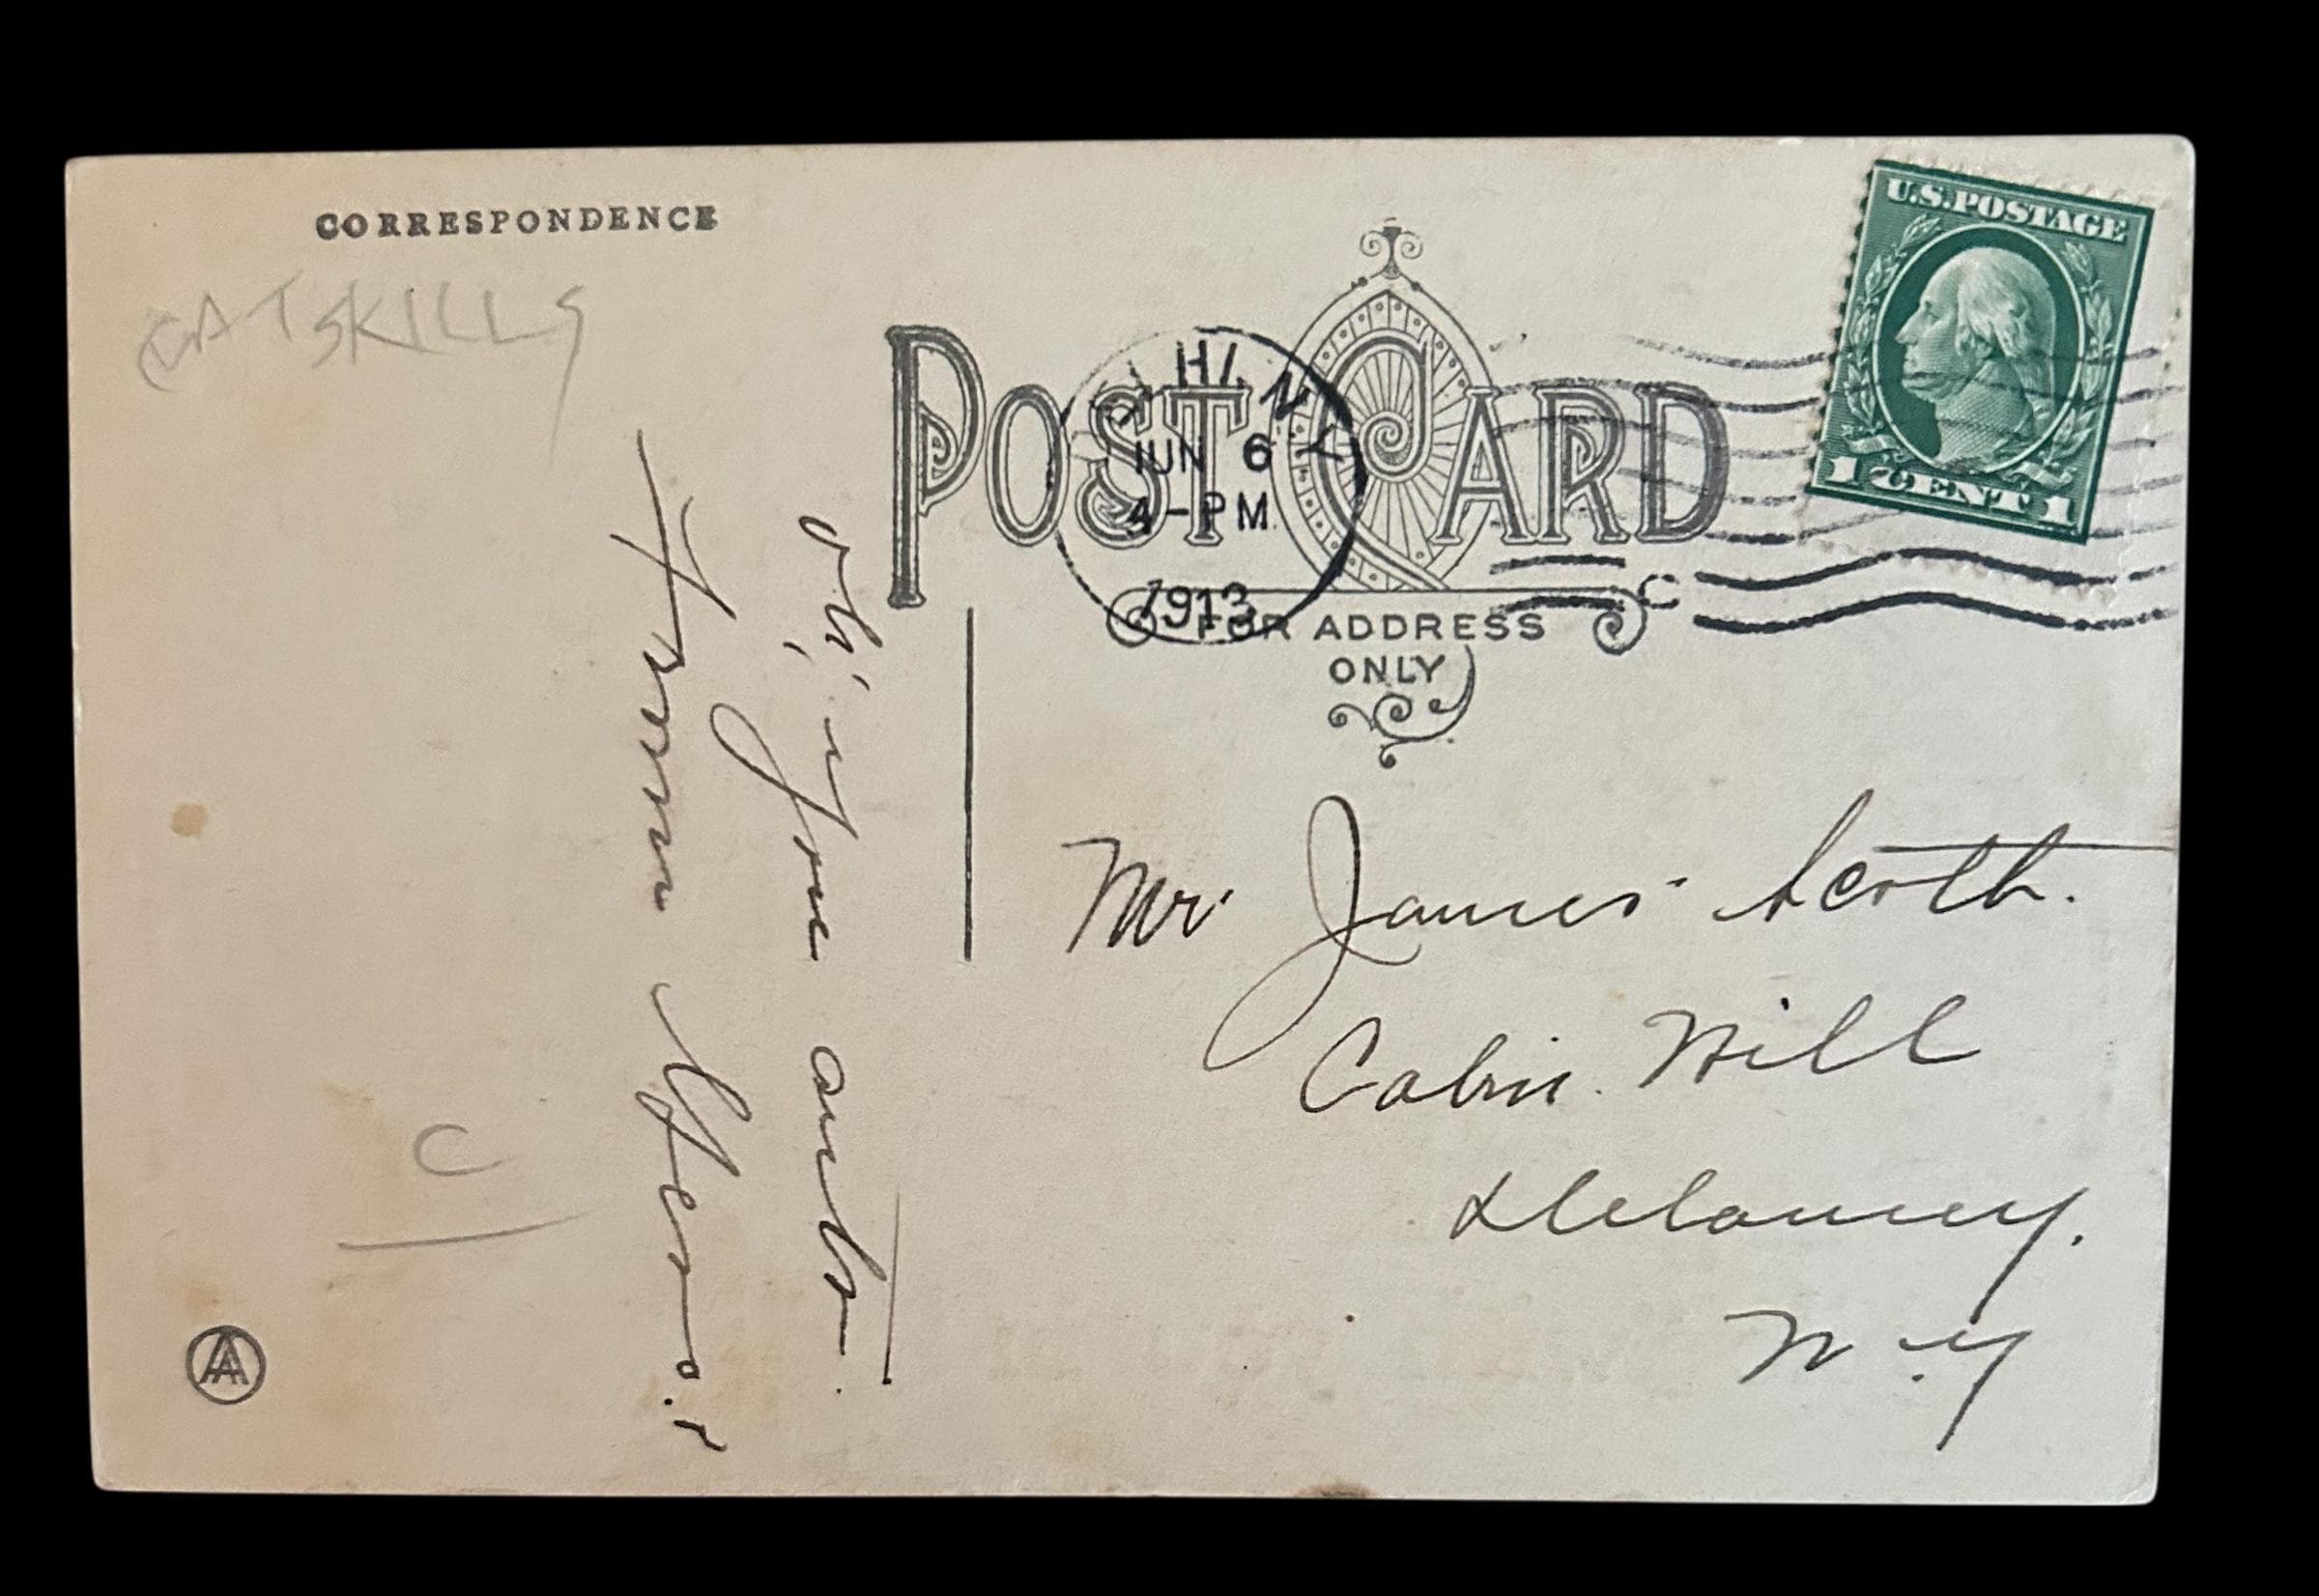 CORRESPONDENCE
CATSKILLS
POST CARD
FOR ADDRESS
ONLY
U.S. POSTAGE
1 CENT 1
N.Y.
JUN 6
4-PM
1913
Oh, you auto.
From
C
Mr James Scott.
Cabin Hill
Delancey.
N.Y
AAA